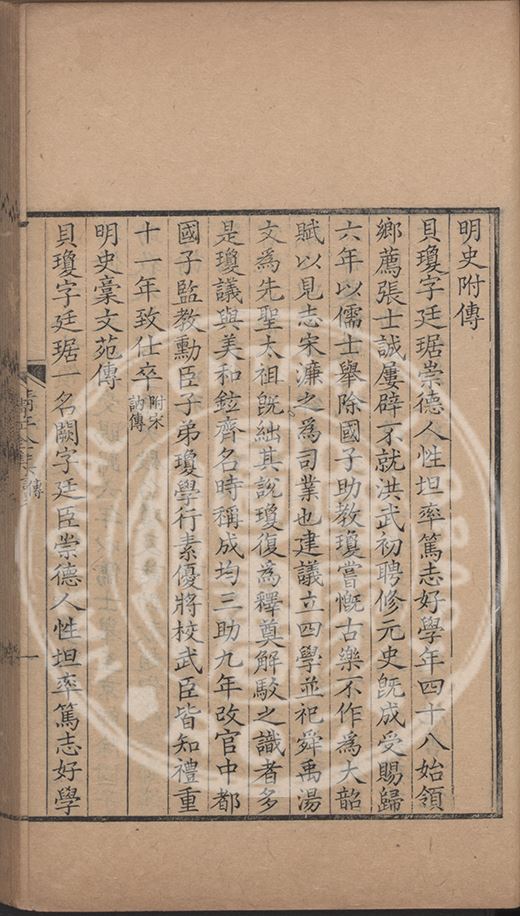 明史附傳
貝瓊字廷琚崇德人性坦率篤志好學年四十八始領
鄉薦張士誠屢辟不就洪武初聘修元史旣成受賜歸
六年以儒士舉除國子助教瓊嘗慨古樂不作為大韶
賦以見志宋濂之為司業也建議立四學並祀舜禹湯
文為先聖太祖旣絀其說瓊復為釋奠解駁之識者多
是瓊議與美和鉉齊名時稱成均三助九年改官中都
國子監教勳臣子弟瓊學行素優將校武臣皆知禮重
十一年致仕卒附宋訥傳
明史稾文苑傳
貝瓊字廷琚一名闕字廷臣崇德人性坦率篤志好學